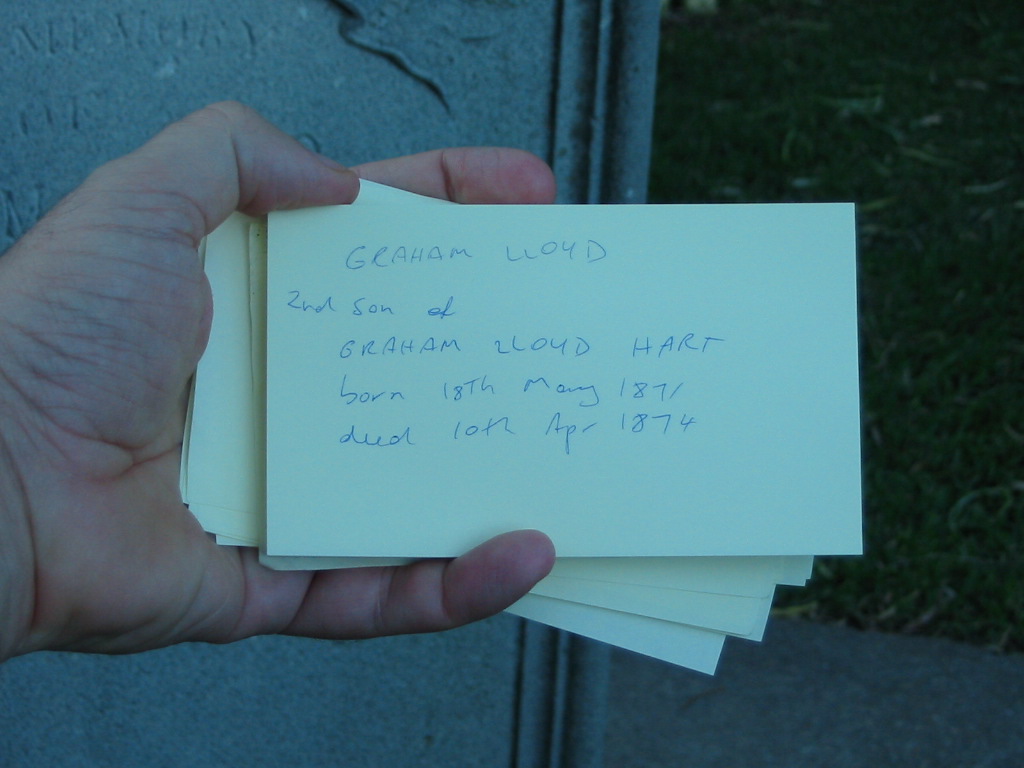 MEMORY
GRAHAM LLOYD
2nd son of
GRAHAM LLOYD HART
born 18Th Many 1871
died 10th Apr 1874